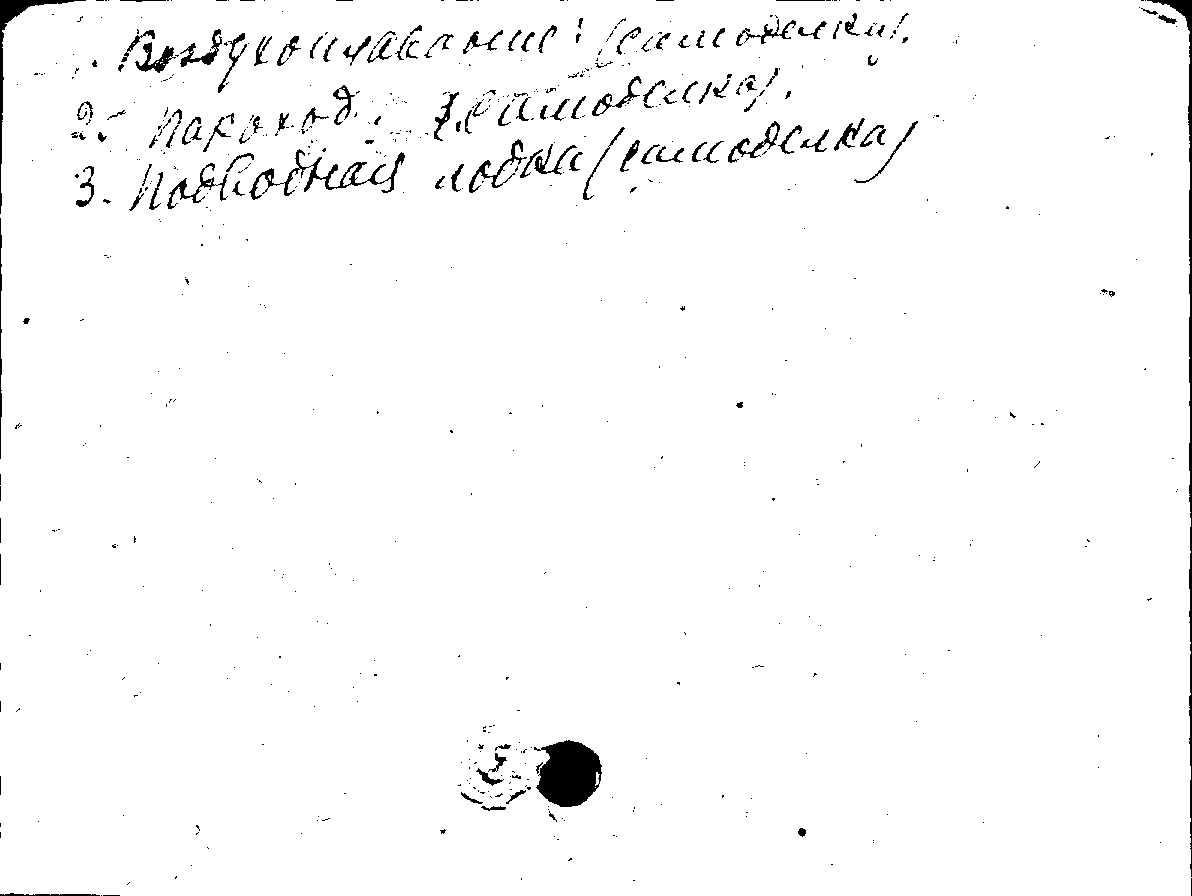 . Воздухоплавание: (самоделки).
2. Пароход: (самоделка).
3. Подводная лодка (самоделка)